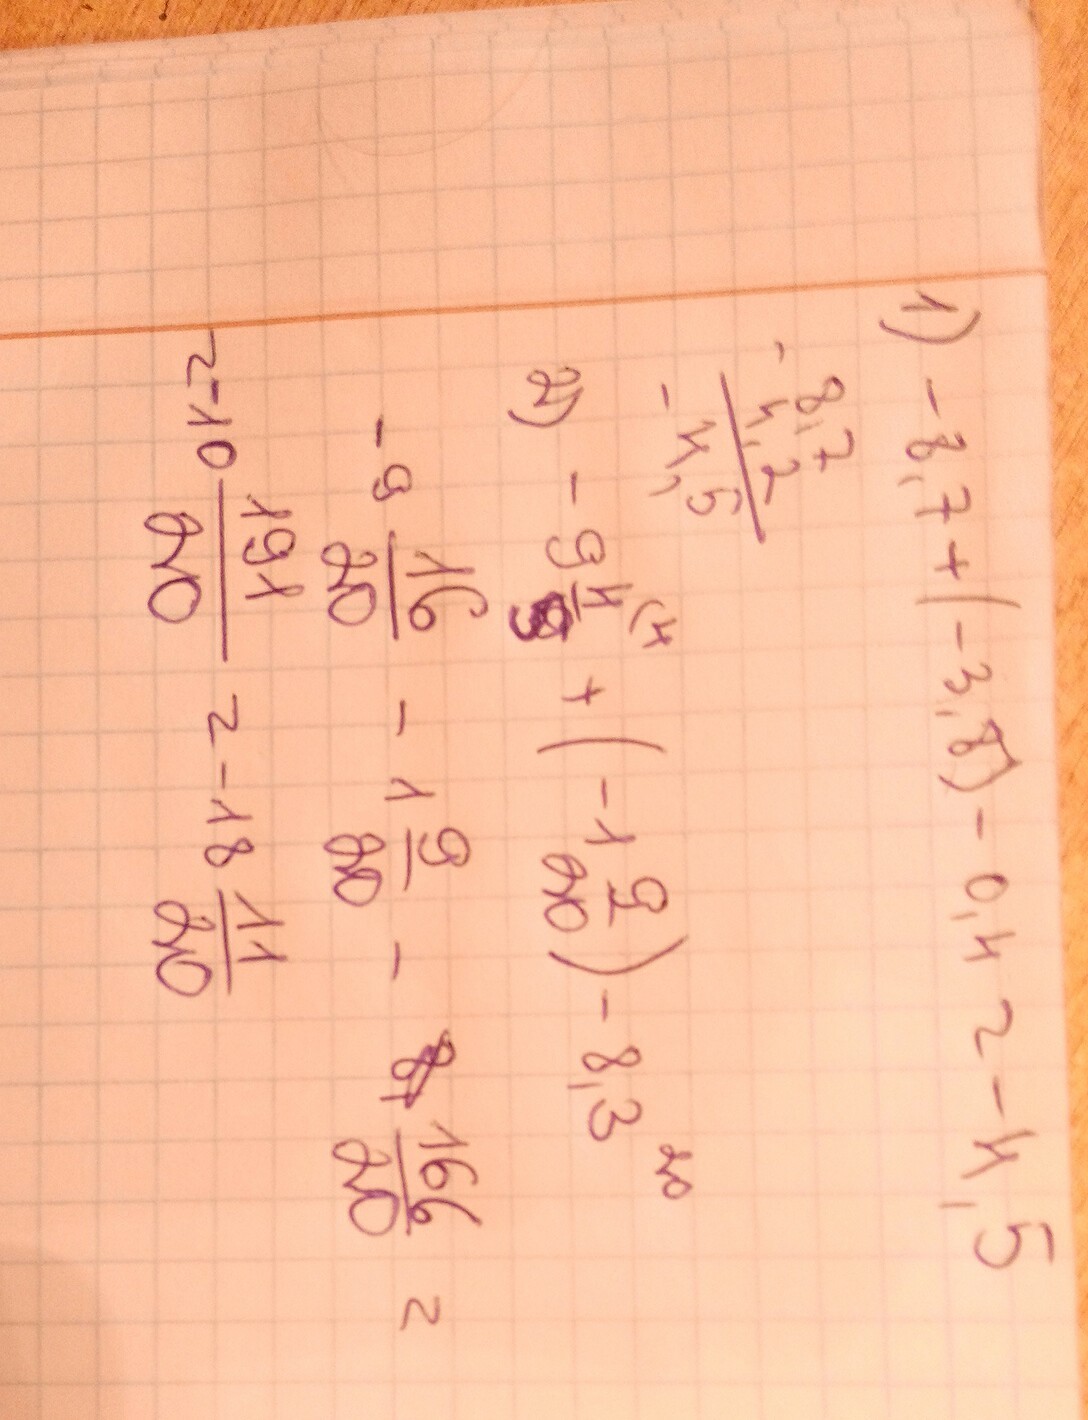 1) -8,7+(-3,8)-0,4=-4,5
-8,7
4,2
-4,5
2) -9 4/5 (4 + (-1 9/20) - 8,3 20
-9 16/20 - 1 9/20 - 166/20 =
=-10 191/20 = -18 11/20